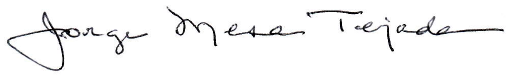 Jorge Mesa Tejada